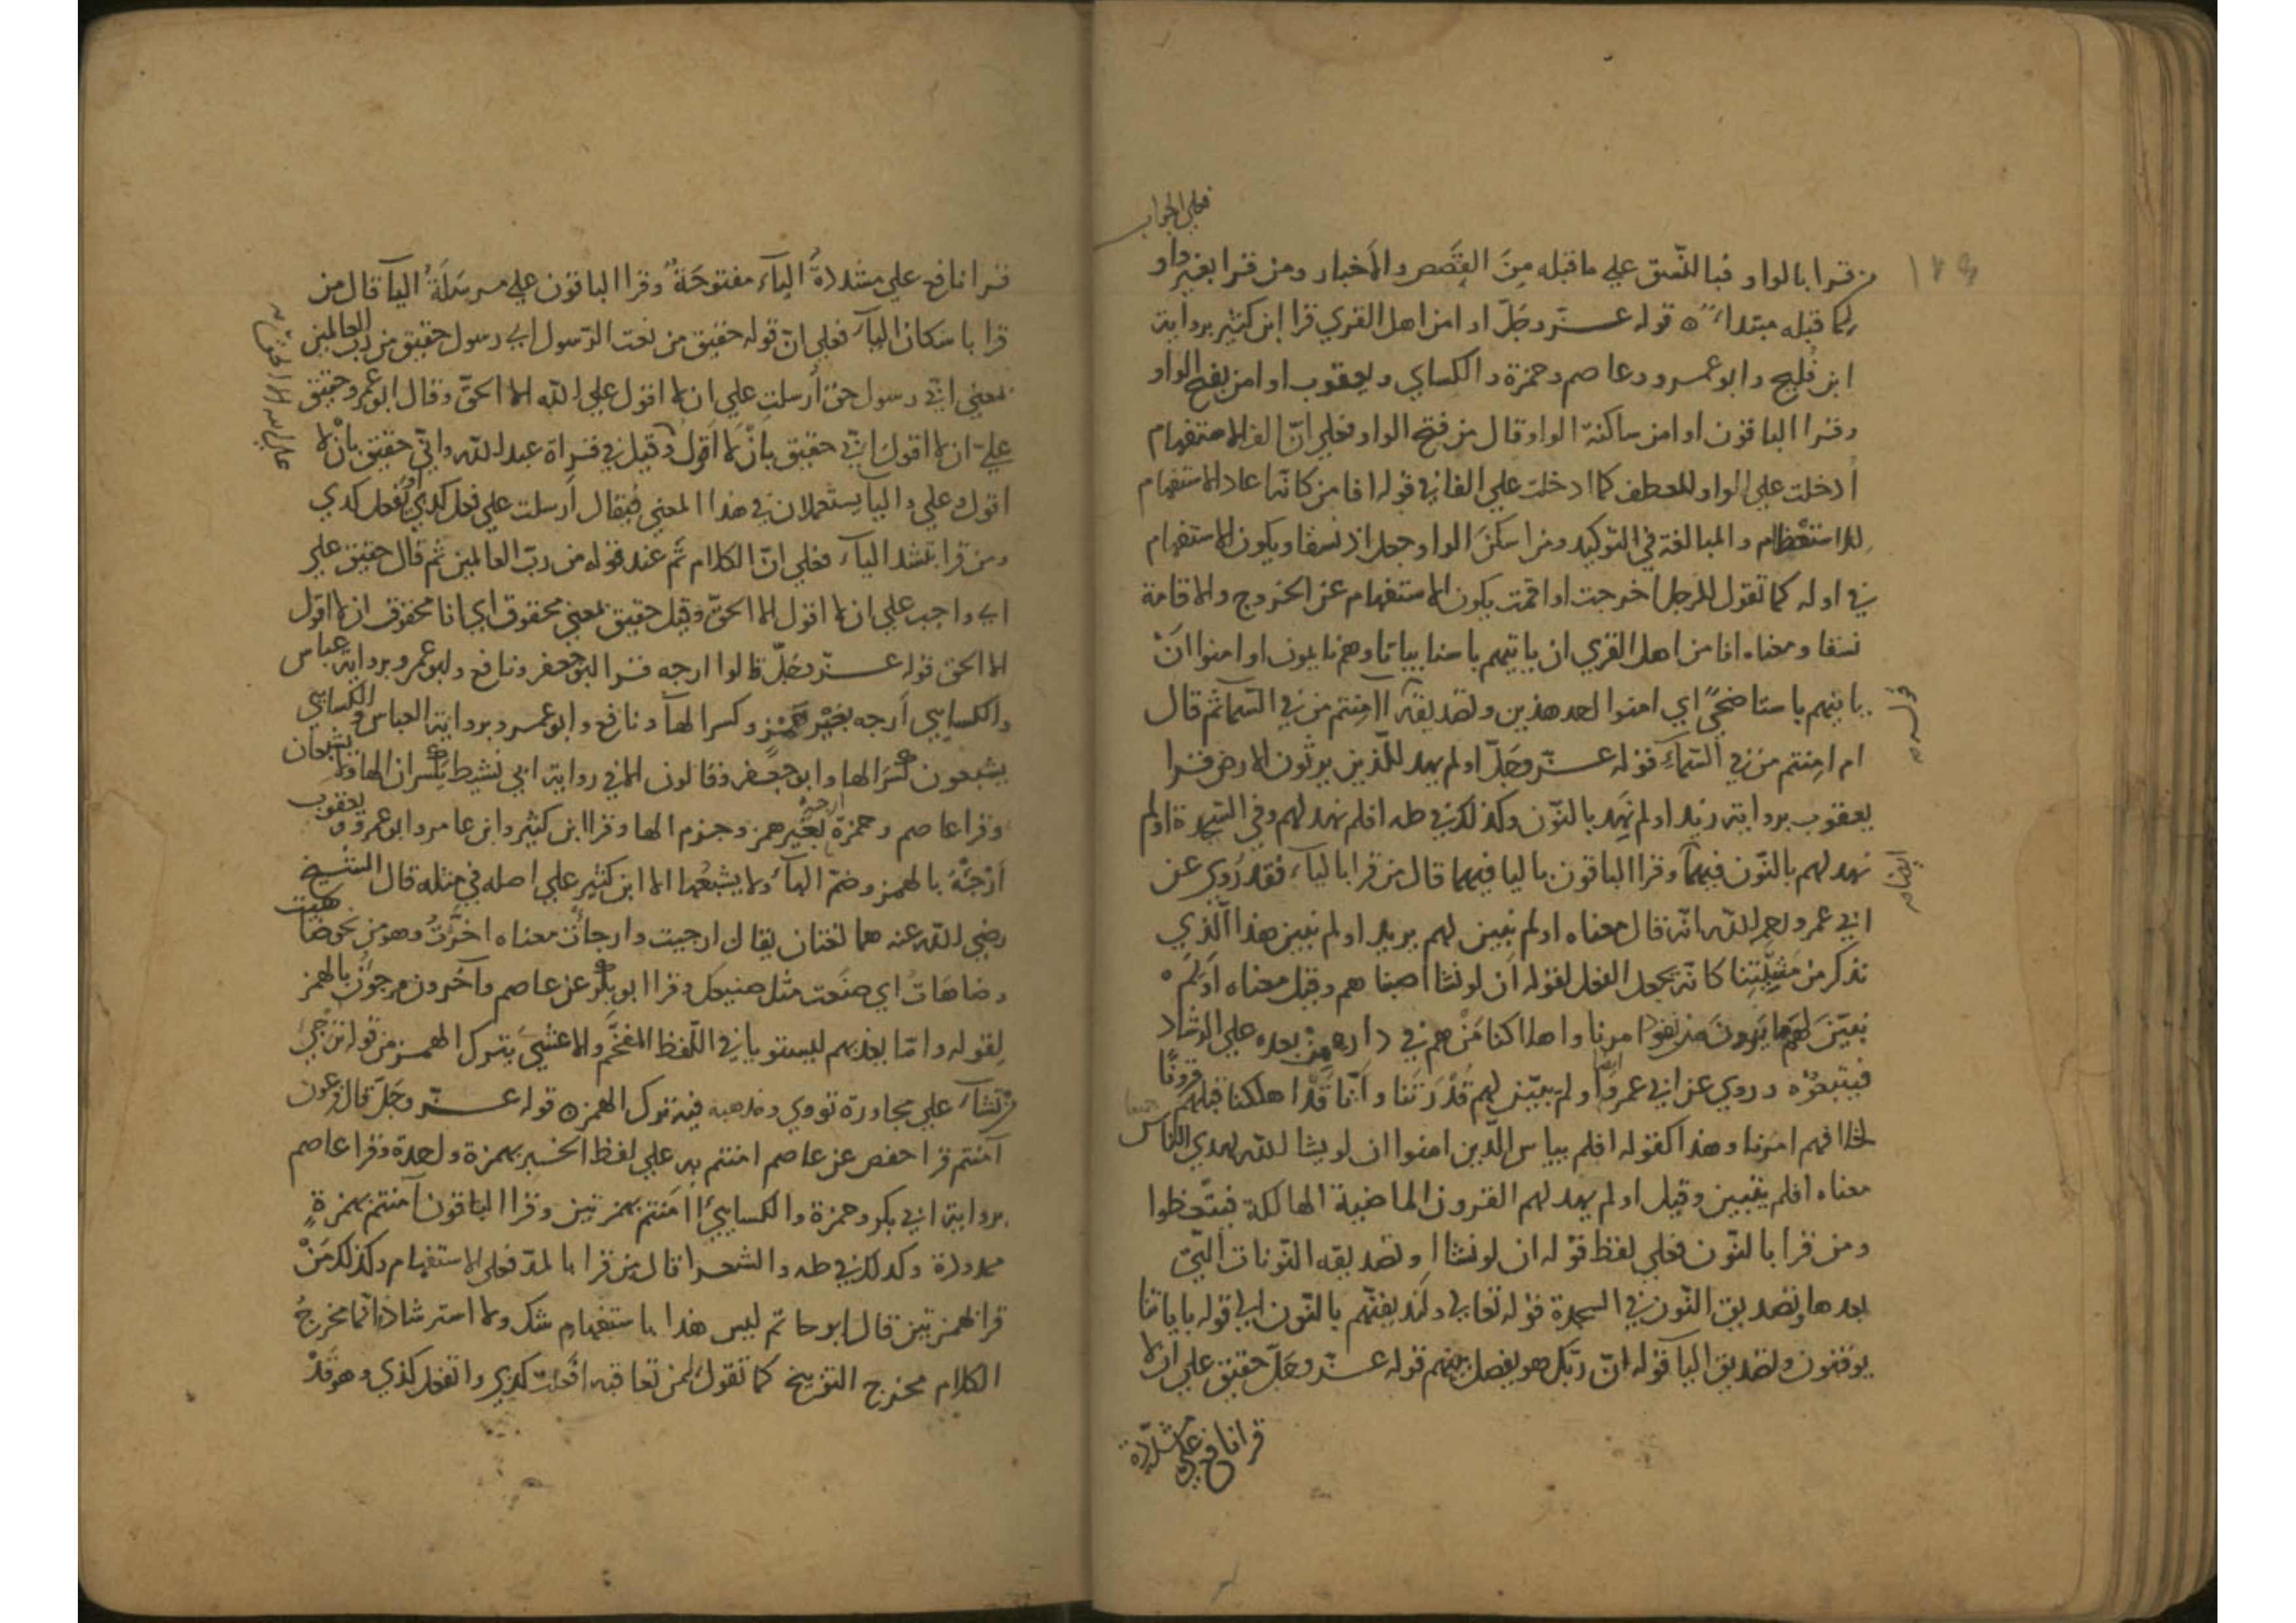 ١٢٩
فعلي الجواب
من قرا بالواو فبالنّسق علي ما قبله مِنَ القِصَصِ والاخبار ومن قرا بغير واو
كما قبله مبتداءً ه قوله عـــزّ وجَلّ او امن اهل القري قرا ابن كثير برواية
ابن فُليح وابو عمـرو وعاصم وحمزة والكساي ويعقوب او امن بفتح الواو
وقرا الباقون او امن ساكنة الواو قال من فتح الواو فعلي انّ الف الاستفهام
ادخلت علي الواو للعطف كما ادخلت علي الفا في قوله افامن كانّه اعاد الاستفهام
للاستعْظام والمبالغة في التوكيد ومن اسكنَ الواو جعل او نسقا ويكون الاستفهام
في اوله كما تقول للرجل اخرجت او اقمت يكون الاستفهام عن الخروج والاقامة
نسقا ومعناه افامن اهل القري ان ياتيهم باسنا بياتا وهم نايمون او امنوا اَنْ
ياتيهم باسنا ضحيً اي امنوا احد هذين وتصديقه اامنتم من في السّماء ثم قال
قوله
ام امِنتم من في السّمآءِ قوله عـــزّ وجَلّ اولم يهد للّذين يرثون الارض قـرا
يعقوب برواية زيد اولم نَهِد بالنّون وكذلك في طه افلم نهد لهم وفي السّجدة اولم
نهد لهم بالنّون فيهمآ وقرا الباقون باليا فيهما قال من قرا باليآء فقد رُوي عن
ابي عمرو رحمه اللّه انّه قال معناه اولم نبين لهم يريد اولم نبين هذا الّذي
نذكر من مَشِيّتنا كانّه يجعل الفعل لقوله اَن لو نشا اصبنا هم وقيل معناه اَوَلَم
نبيّنَ لهم ما يَرونَ من نفوذ امرنا واهلاكنا مَنْ هم في داره من بعده علي الرشاد
فيتبعوُه وروي عن ابي عمرو ايضا اولم يبيّن لهم قُدْرَتنا واَنّا قَدْ اهلكنا قبلهم قرونًا
لخلافهم امرنا وهذا كقوله افلم يياس الّذين امنوا ان لو يشا اللّه لهدي الناس جميعا
معناه افلم يتبين وقيل اولم يهد لهم القرون الماضية الهالكة فيتّعظوا
ومن قرا بالنّون فعلي لفظ قوْله ان لو نشاا وتصديقه النّونات الّتي
بعدها وتصديق النّون في السجدة قوْله تعالي ولنذيقنّهم بالنّون الي قوله باياتنا
يوقنون وتصديق اليا قوله انّ ربّك هو يفصل بينهم قوله عـــزّ وجَلّ حقيق علي ان لا
قرا نافع علي مشدّدة
قـرا نافع علي مشدّدةً اليآء مفتوحَةً وقرا الباقون علي مرسَلَةُ اليآ قال من
قرا باسكان اليآء فعلي انّ قوله حقيق من نعت الرّسول اي رسول حقيق من رب العالمين
بمعني انّي رسول حق أُرسلت علي ان لا اقول علي اللّه الا الحقّ وقال ابو عمرو حقيق
عليّ ان لا اقول اي حقيق باَنْ لا اَقول وقيل في قراة عبد اللّه وانّي حقيق بانْ لا
اقول وعلي واليا يستعملان في هذا المعني فيقال اَرسلت علي فعل كذي وبفعل كذي
ومن قرا بتشد اليآء فعلي انّ الكلام تَم عند قوله من ربّ العالمين ثم قال حقيق علي
اي واجب علي ان لا اقول الا الحقّ وقيل حقيق بمعني محقوق اي انا محقوق ان لا اقول
الا الحق قوله عـــزّ وجَلّ قالوا ارجه قـرا ابو جعفر ونافع وابو عمرو برواية عباس
والكسايي اَرجه بغيْر همْزٍ وكسر الهآ ونافع وابو عمرو برواية العباس والكسايي
يشبعون كسَرالها وابو جعـفر وقالون الا في رواية ابي نشيط يكسران الها ولا يشبعان
وقرا عاصم وحمزة ارجهْ بغير همز وجزم الها وقرا ابن كثير وابن عامر وابو عمرو ويعقوب
اَرْجئْهُ بالهمز وضمّ الهآء ولا يشبعُها الا ابن كثير علي اصله في مثله قال الشيخ
رضي اللّه عنه هما لغتان يقال ارجيت وارجأْت معناه اخَّرْتُ وهو من نحو ضاهيت
وضاهَات اي صنَعت مثل صنيعك وقرا ابو بكر عن عاصم وآخرون مرجؤن بالهمز
لقوله وامّا يعذبهم ليستويا في اللّفظ المفخَّم والاعشي يترك الهمـز من قوله ترجي
من تشآء علي مجاورة تووي ومذهبه فيه ترك الهمزه قوله عـــزّ وجَلّ قال فرعون
آمنتم قرا حفص عن عاصم امنتم به علي لفظ الخـبر بهمزة واحدة وقرا عاصم
برواية ابي بكر وحمزة والكسايي أاَمَنتم بهمزتين وقرا الباقون آمنتم بهمزةٍ
ممدودة وكذلك في طه والشعـرا قال من قرا بالمدّ فعلي الاستفهام وكذلك مَنْ
قرا بهمزتين قال ابو حاتم ليس هذا باستفهام شك ولا استرشاد انّما مخرج
الكلام مخرج التوبيخ كما تقول لمن تعاقبه افَعلت كذي واتفعل كذي وهو قَدْ